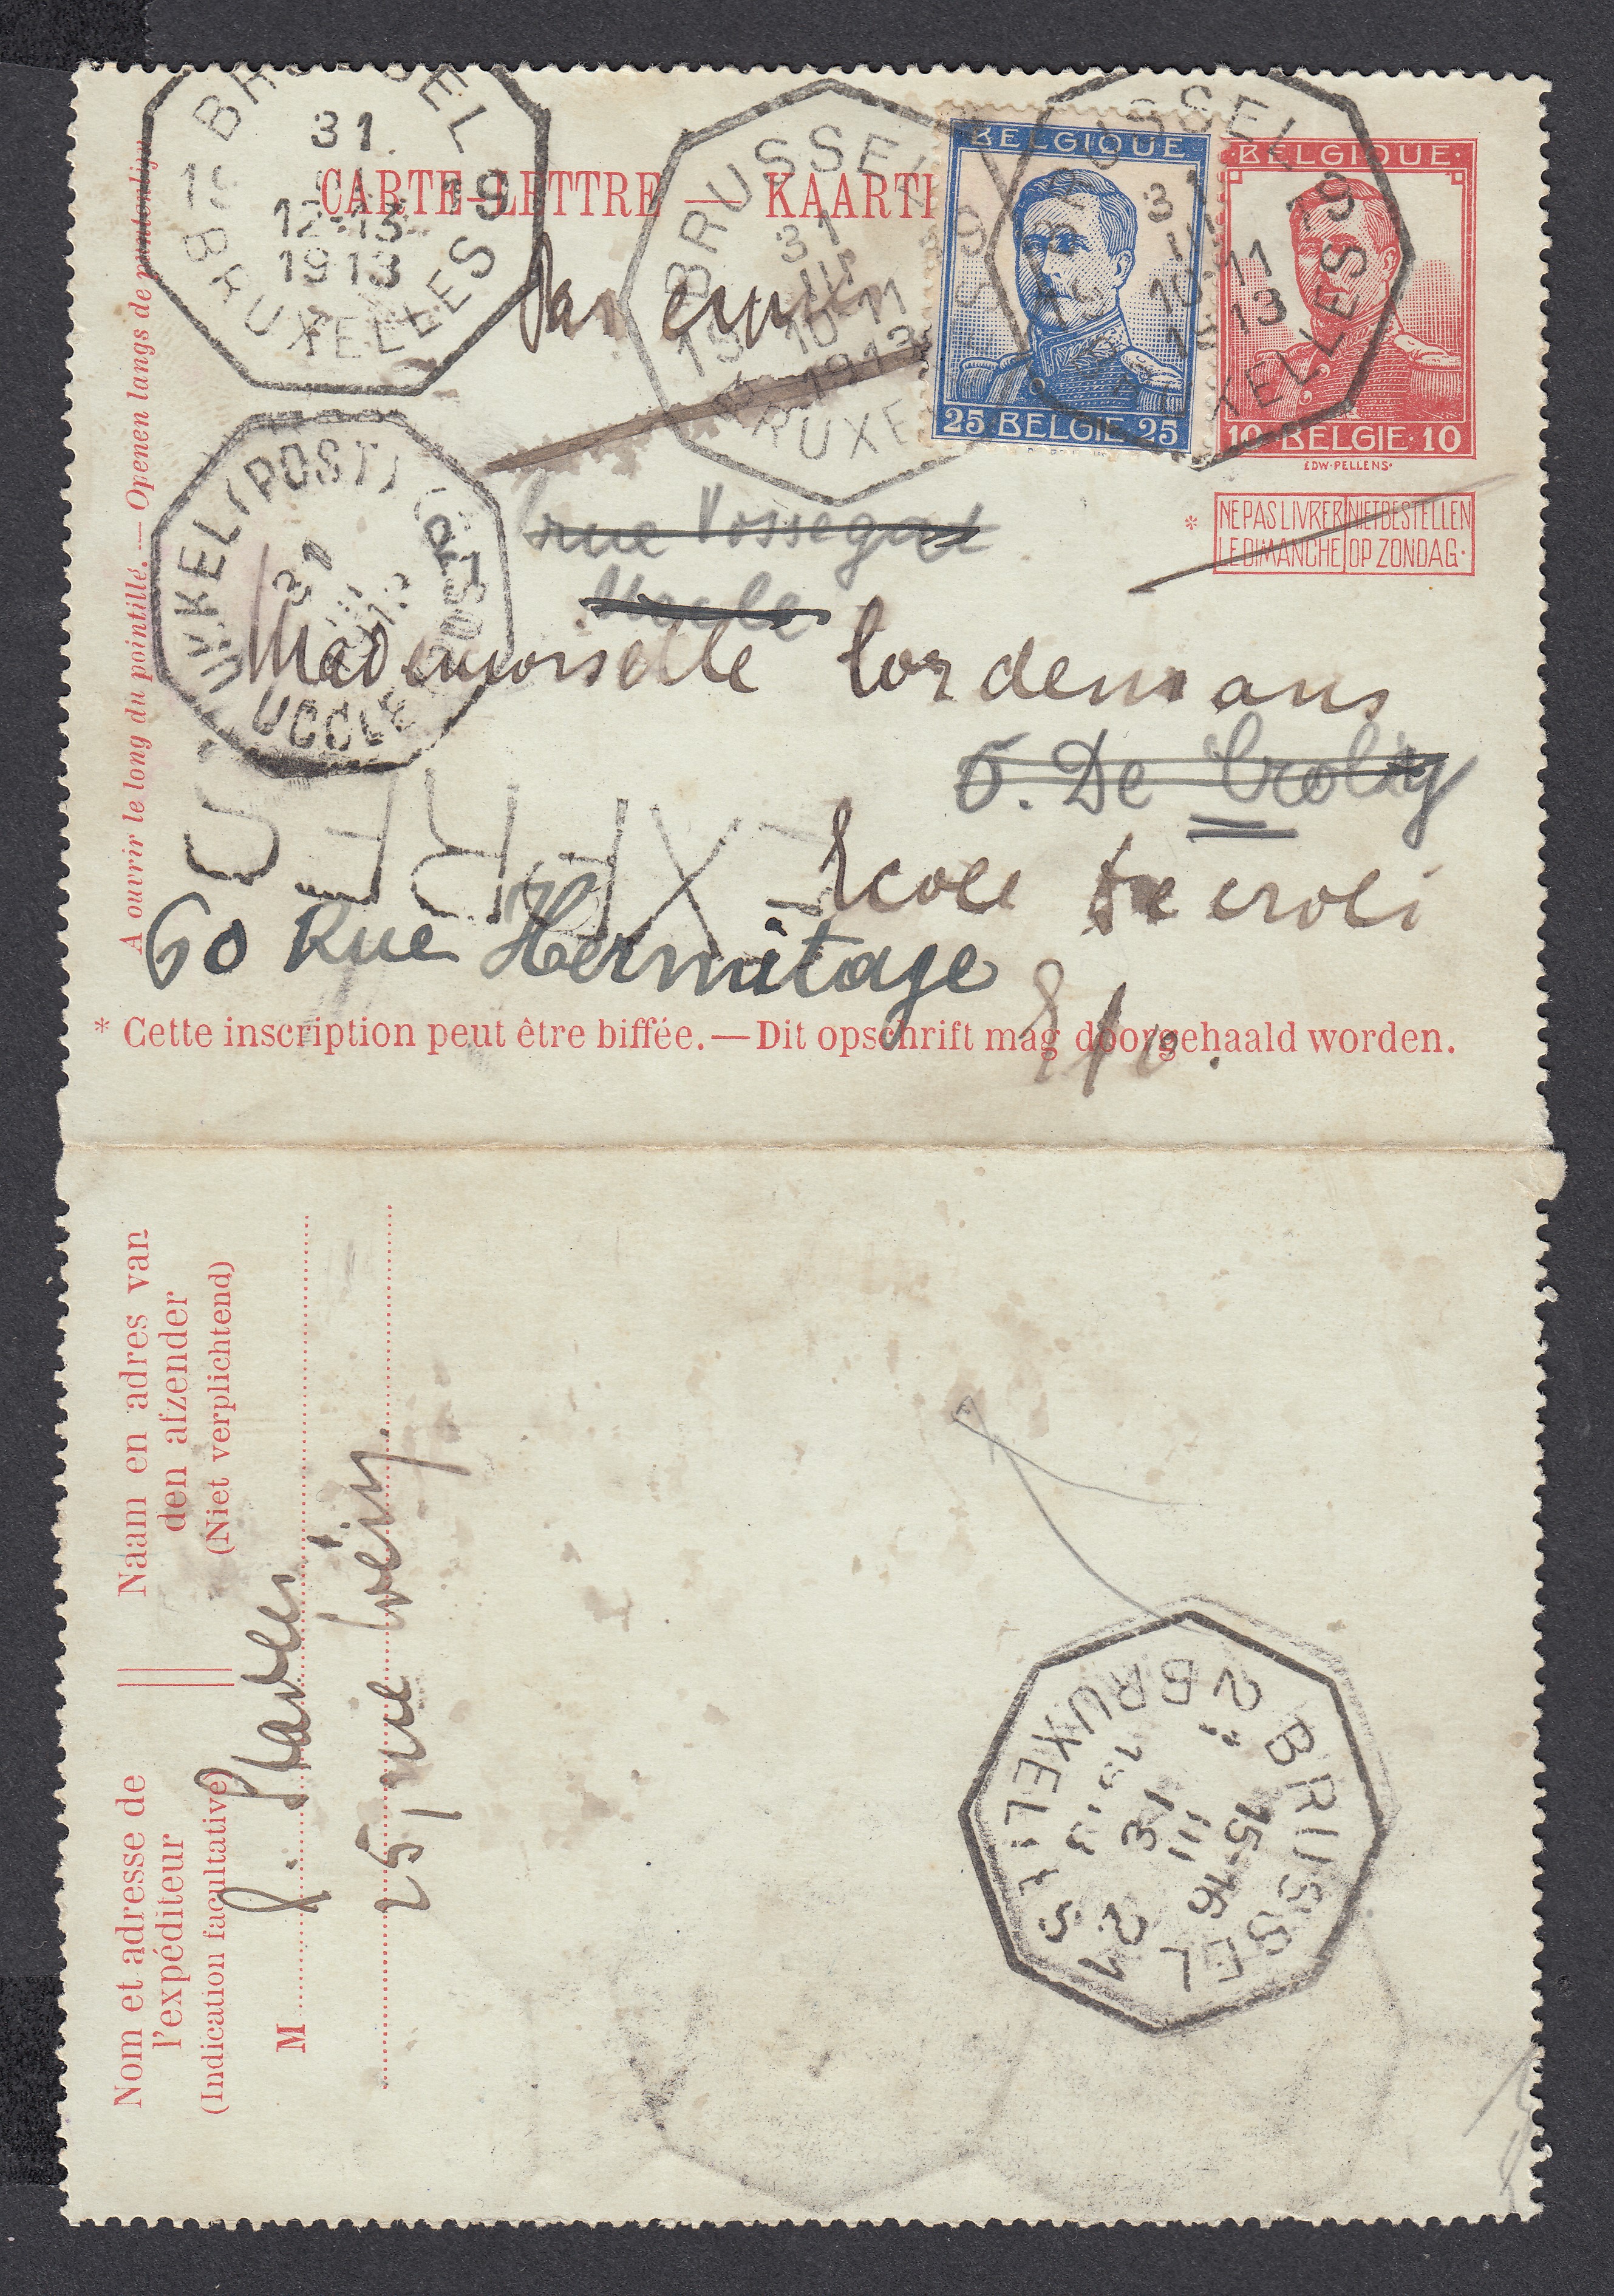 BRUSSEL
31
12-13
1913
19 19
BRUXELLES
CARTE-LETTRE — KAARTE
BRUSSEL
31
III
10-11
1913
19 19
BRUXE
BELGIQUE
25 BELGIE 25
BRUSSEL
31
III
10-11
1913
19 19
BRUXELLES
BELGIQUE
10 BELGIE 10
EDW·PELLENS·
Par exprès
* NE PAS LIVRER LE DIMANCHE
NIET BESTELLEN OP ZONDAG·
UKKEL (POST)
31
III
1913
UCCLE (POSTE)
rue Vossegat
Uccle
Mademoiselle Cordemans
O. De Croly
Ecole Decroli
EXPRES
60 Rue Hermitage
E/V.
* Cette inscription peut être biffée.—Dit opschrift mag doorgehaald worden.
A ouvrir le long du pointillé.—Openen langs de puntenlijn.
Naam en adres van
den afzender
(Niet verplichtend)
Nom et adresse de
l'expéditeur
(Indication facultative)
M
25, rue
BRUSSEL
15-16
31
III
1913
2 2
BRUXELLES